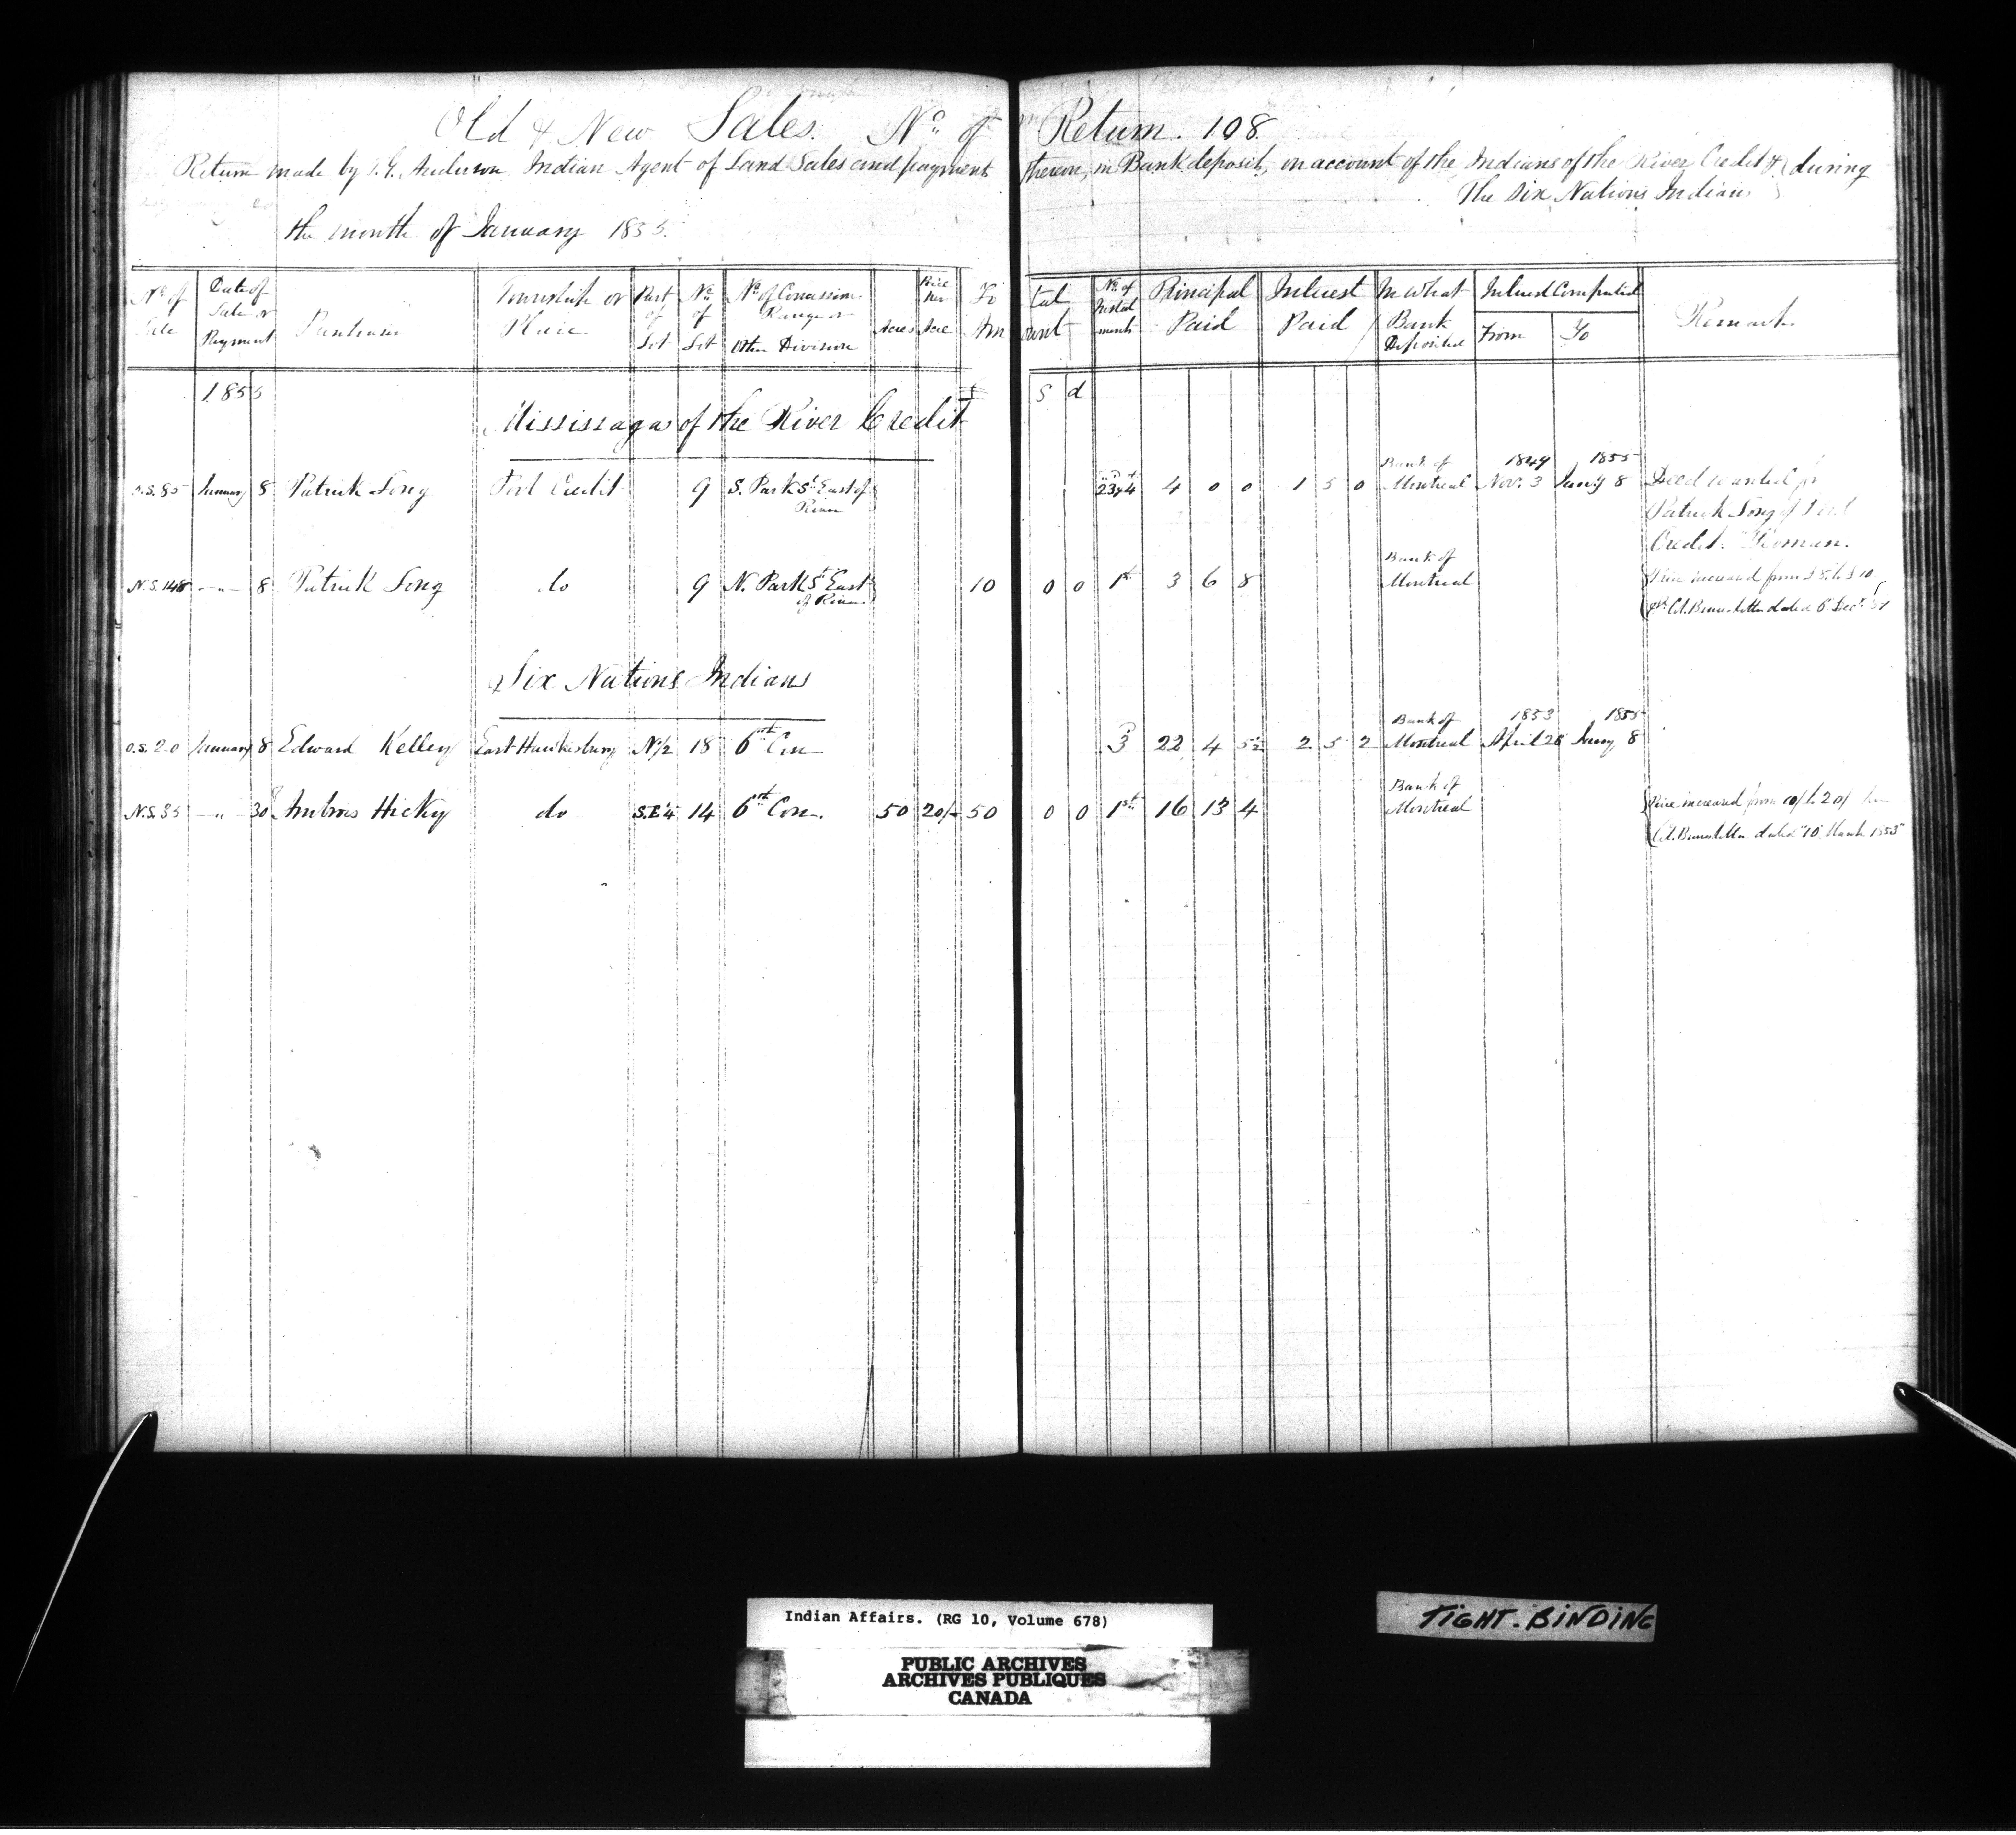 Old & New Sales. No. of Return. 108
Return made by T. G. Anderson Indian Agent of Land Sales and payment thereon, in Bank deposit, on account of the Indians of the River Credit & during
the Six Nations Indians
the month of January 1855.
No. of Sale | Date of Sale or Payment | Purchaser | Township or Place | Part of Lot | No. of Lot | No. of Concession Range or Other Division | Acres | Price per Acre | Total Amount | No. of Instalments | Principal Paid | Interest Paid | In What Bank Deposited | Interest Computed From | To | Remarks
1855 £ S d
Mississagas of the River Credit
O.S. 85 January 8 Patrick Long Port Credit 9 S. Park St. East of River 2 3 & 4 4 0 0 1 5 0 Bank of Montreal 1849 Nov. 3 1855 Jany 8 Deed wanted for
Patrick Long of Port
Credit.
N.S. 148 — " — 8 Patrick Long do 9 N. Park St. East of River 10 0 0 1st 3 6 8 Bank of Montreal Price increased from £5 to £10
dated 6 Decr. 54
Six Nations Indians
O.S. 20 January 8 Edward Kelley East Hawkesbury N½ 18 6th Con 3 22 4 5½ 2 5 2 Bank of Montreal 1853 April 28 1855 Jany 8
N.S. 35 — " — 30 Ambros Hicky do S.E¼ 14 6th Con. 50 20/- 50 0 0 1st 16 13 4 Bank of Montreal Price increased from 10/ to 20/
dated 10 March 1853
Indian Affairs. (RG 10, Volume 678)
PUBLIC ARCHIVES
ARCHIVES PUBLIQUES
CANADA
TIGHT. BINDING